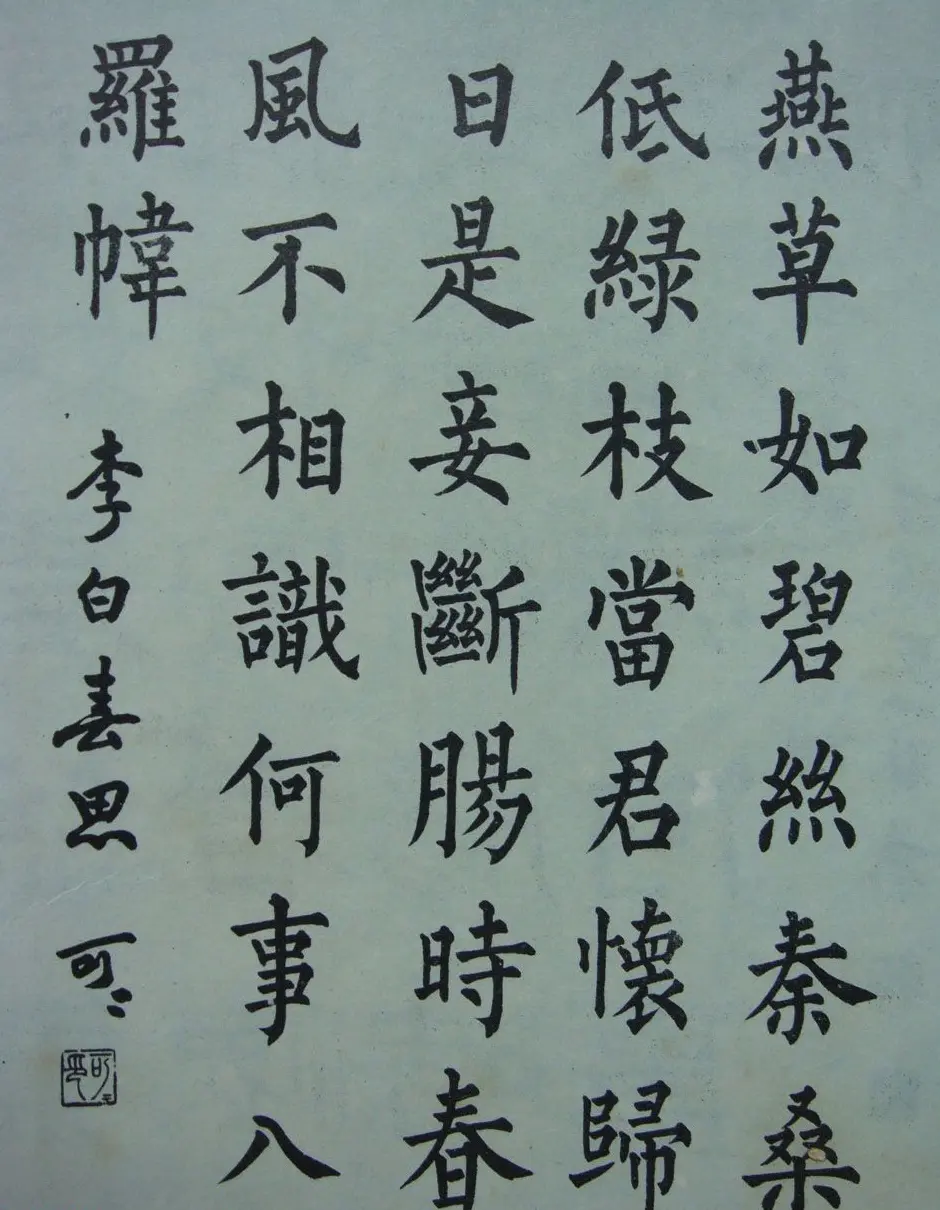 燕草如碧絲秦桑
低綠枝當君懷歸
日是妾斷腸時春
風不相識何事八
羅幃 李白春思 可〻